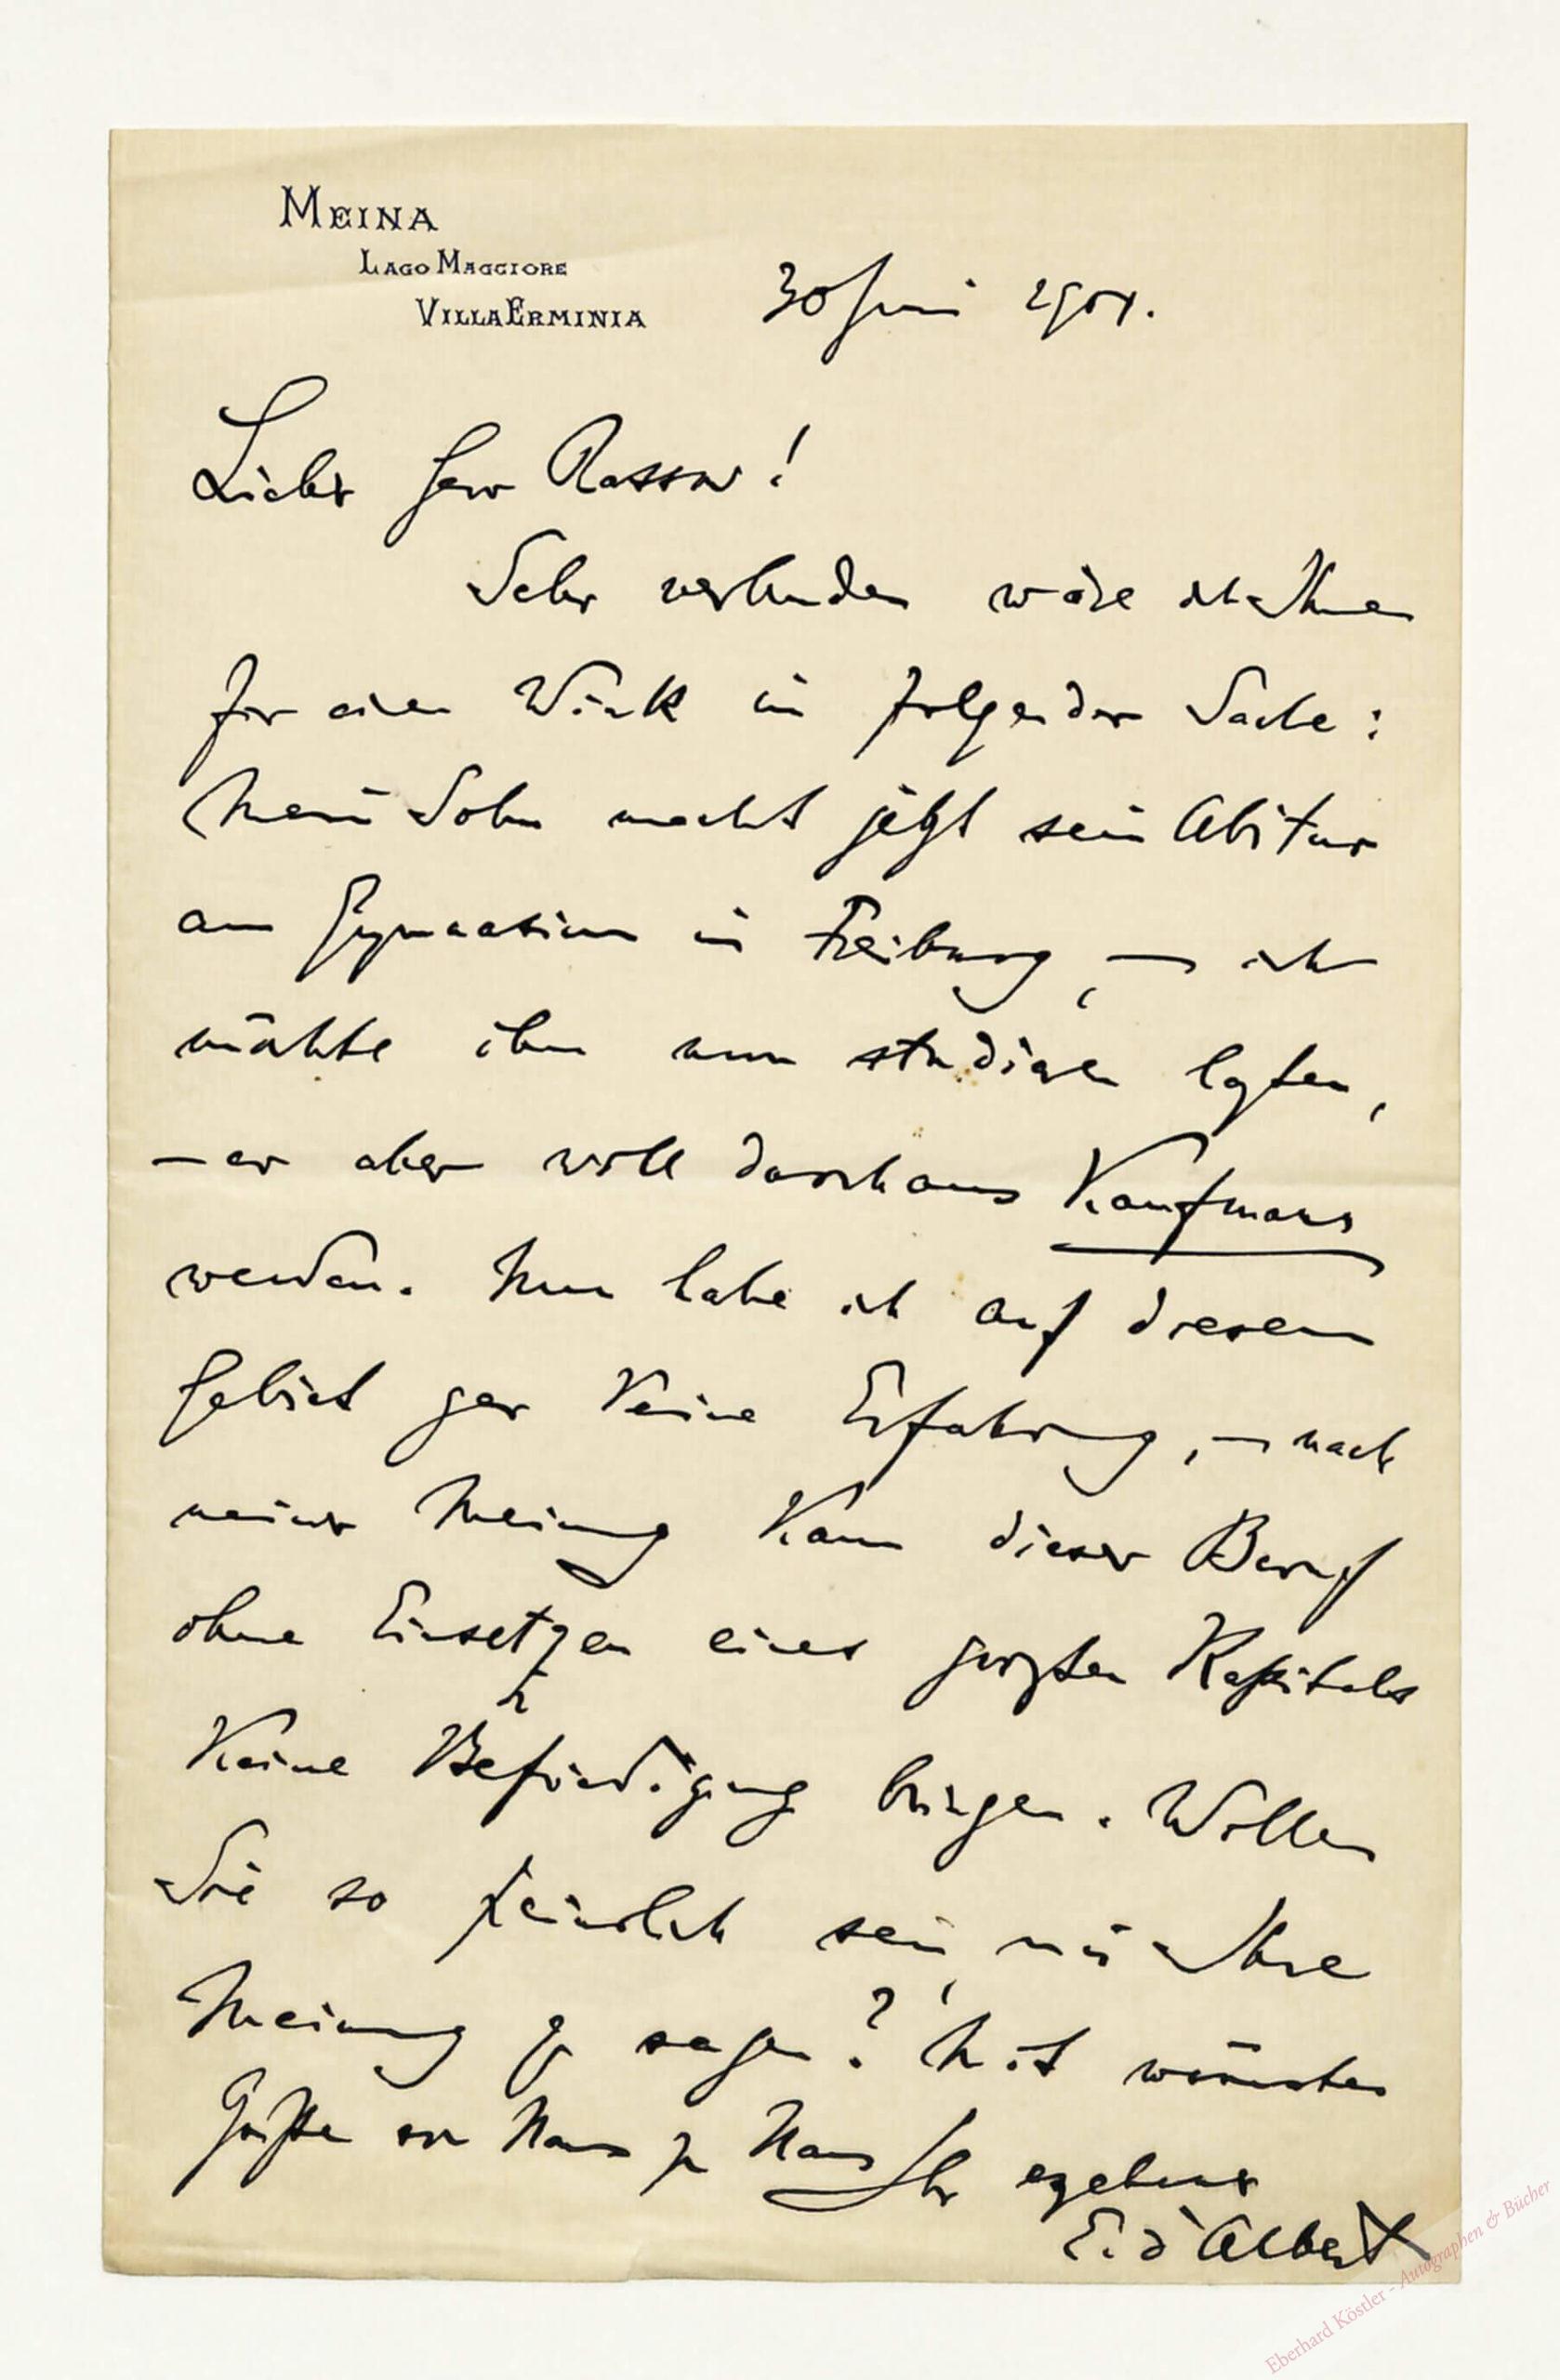 MEINA
LAGO MAGGIORE
VILLA ERMINIA
30 Juni 1904.
Lieber Herr Rassow!
Sehr verbunden wäre ich Ihnen
für einen Wink in folgender Sache:
Mein Sohn macht jetzt sein Abitur
am Gymnasium in Freiburg, — ich
möchte ihn nun studieren lassen,
— er aber will durchaus Kaufmann
werden. Nun habe ich auf diesem
Gebiet gar keine Erfahrung, — nach
meiner Meinung kann dieser Beruf
ohne Einsetzen eines großen Kapitals
keine Befriedigung bringen. Wollen
Sie so freundlich sein, mir Ihre
Meinung zu sagen? Mit wärmsten
Grüßen von Haus zu Haus Ihr ergebener
E. d'Albert
Eberhard Köstler - Autographen & Bücher